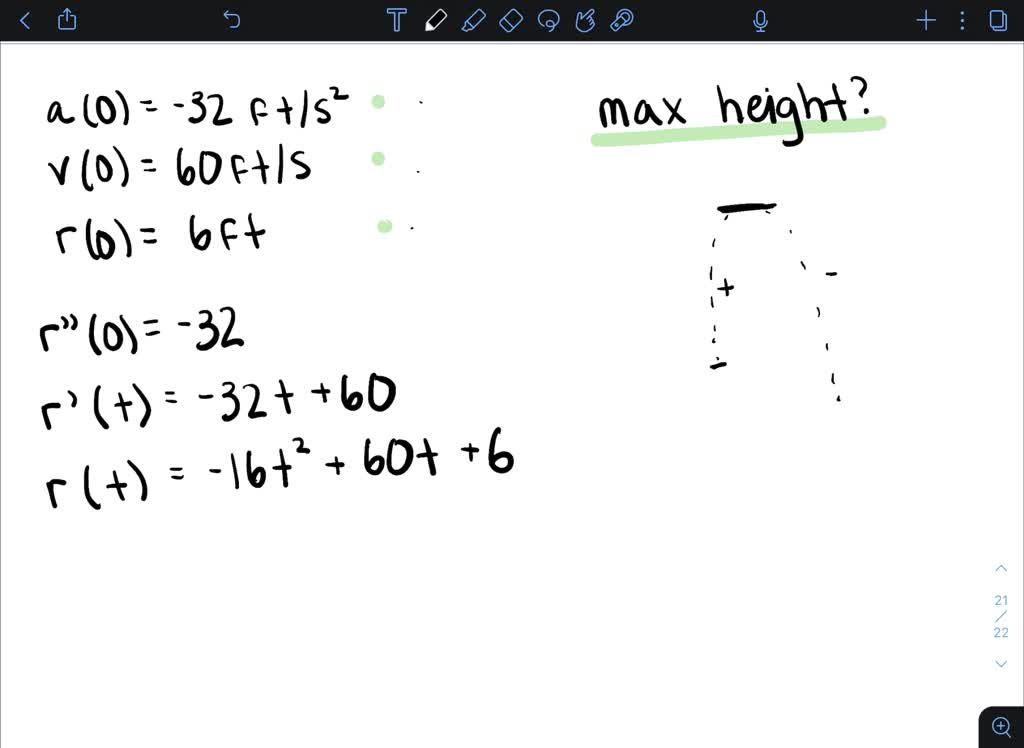 a(0) = -32 ft/s²
v(0) = 60ft/s
r(0) = 6ft
max height?
+
-
r''(0) = -32
r'(t) = -32t + 60
r(t) = -16t² + 60t + 6
21
/
22